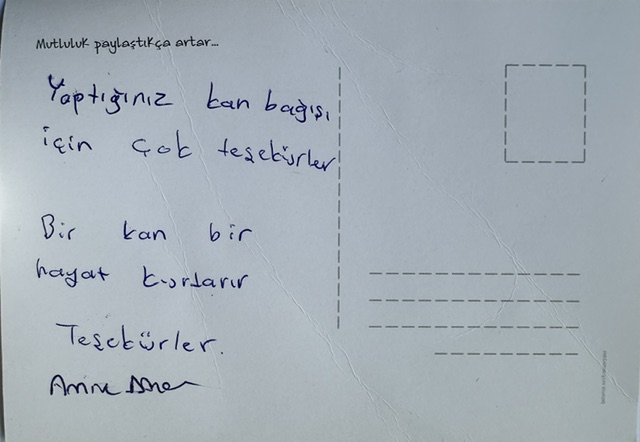 Mutluluk paylaştıkça artar...
Yaptığınız kan bağışı
için çok teşekürler
Bir kan bir
hayat kurtarır
Teşekürler.